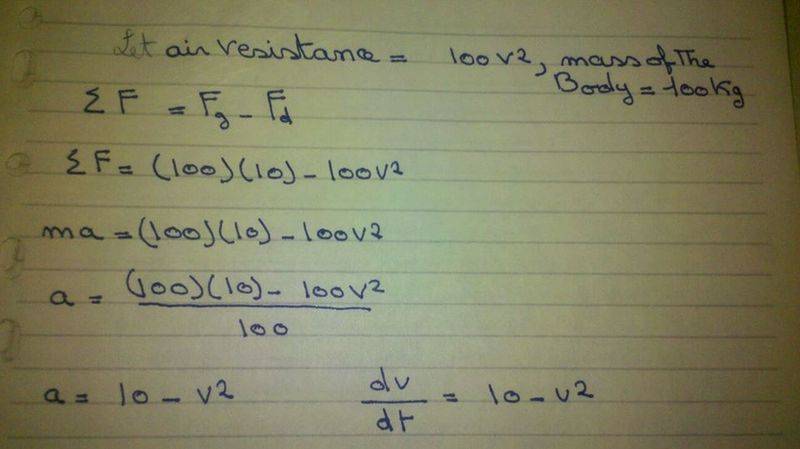 Let air resistance = 100v2, mass of The
Body = 100Kg
ΣF = Fg - Fd
ΣF = (100)(10) - 100v2
ma = (100)(10) - 100v2
a = (100)(10) - 100v2
100
a = 10 - v2 dv/dt = 10 - v2